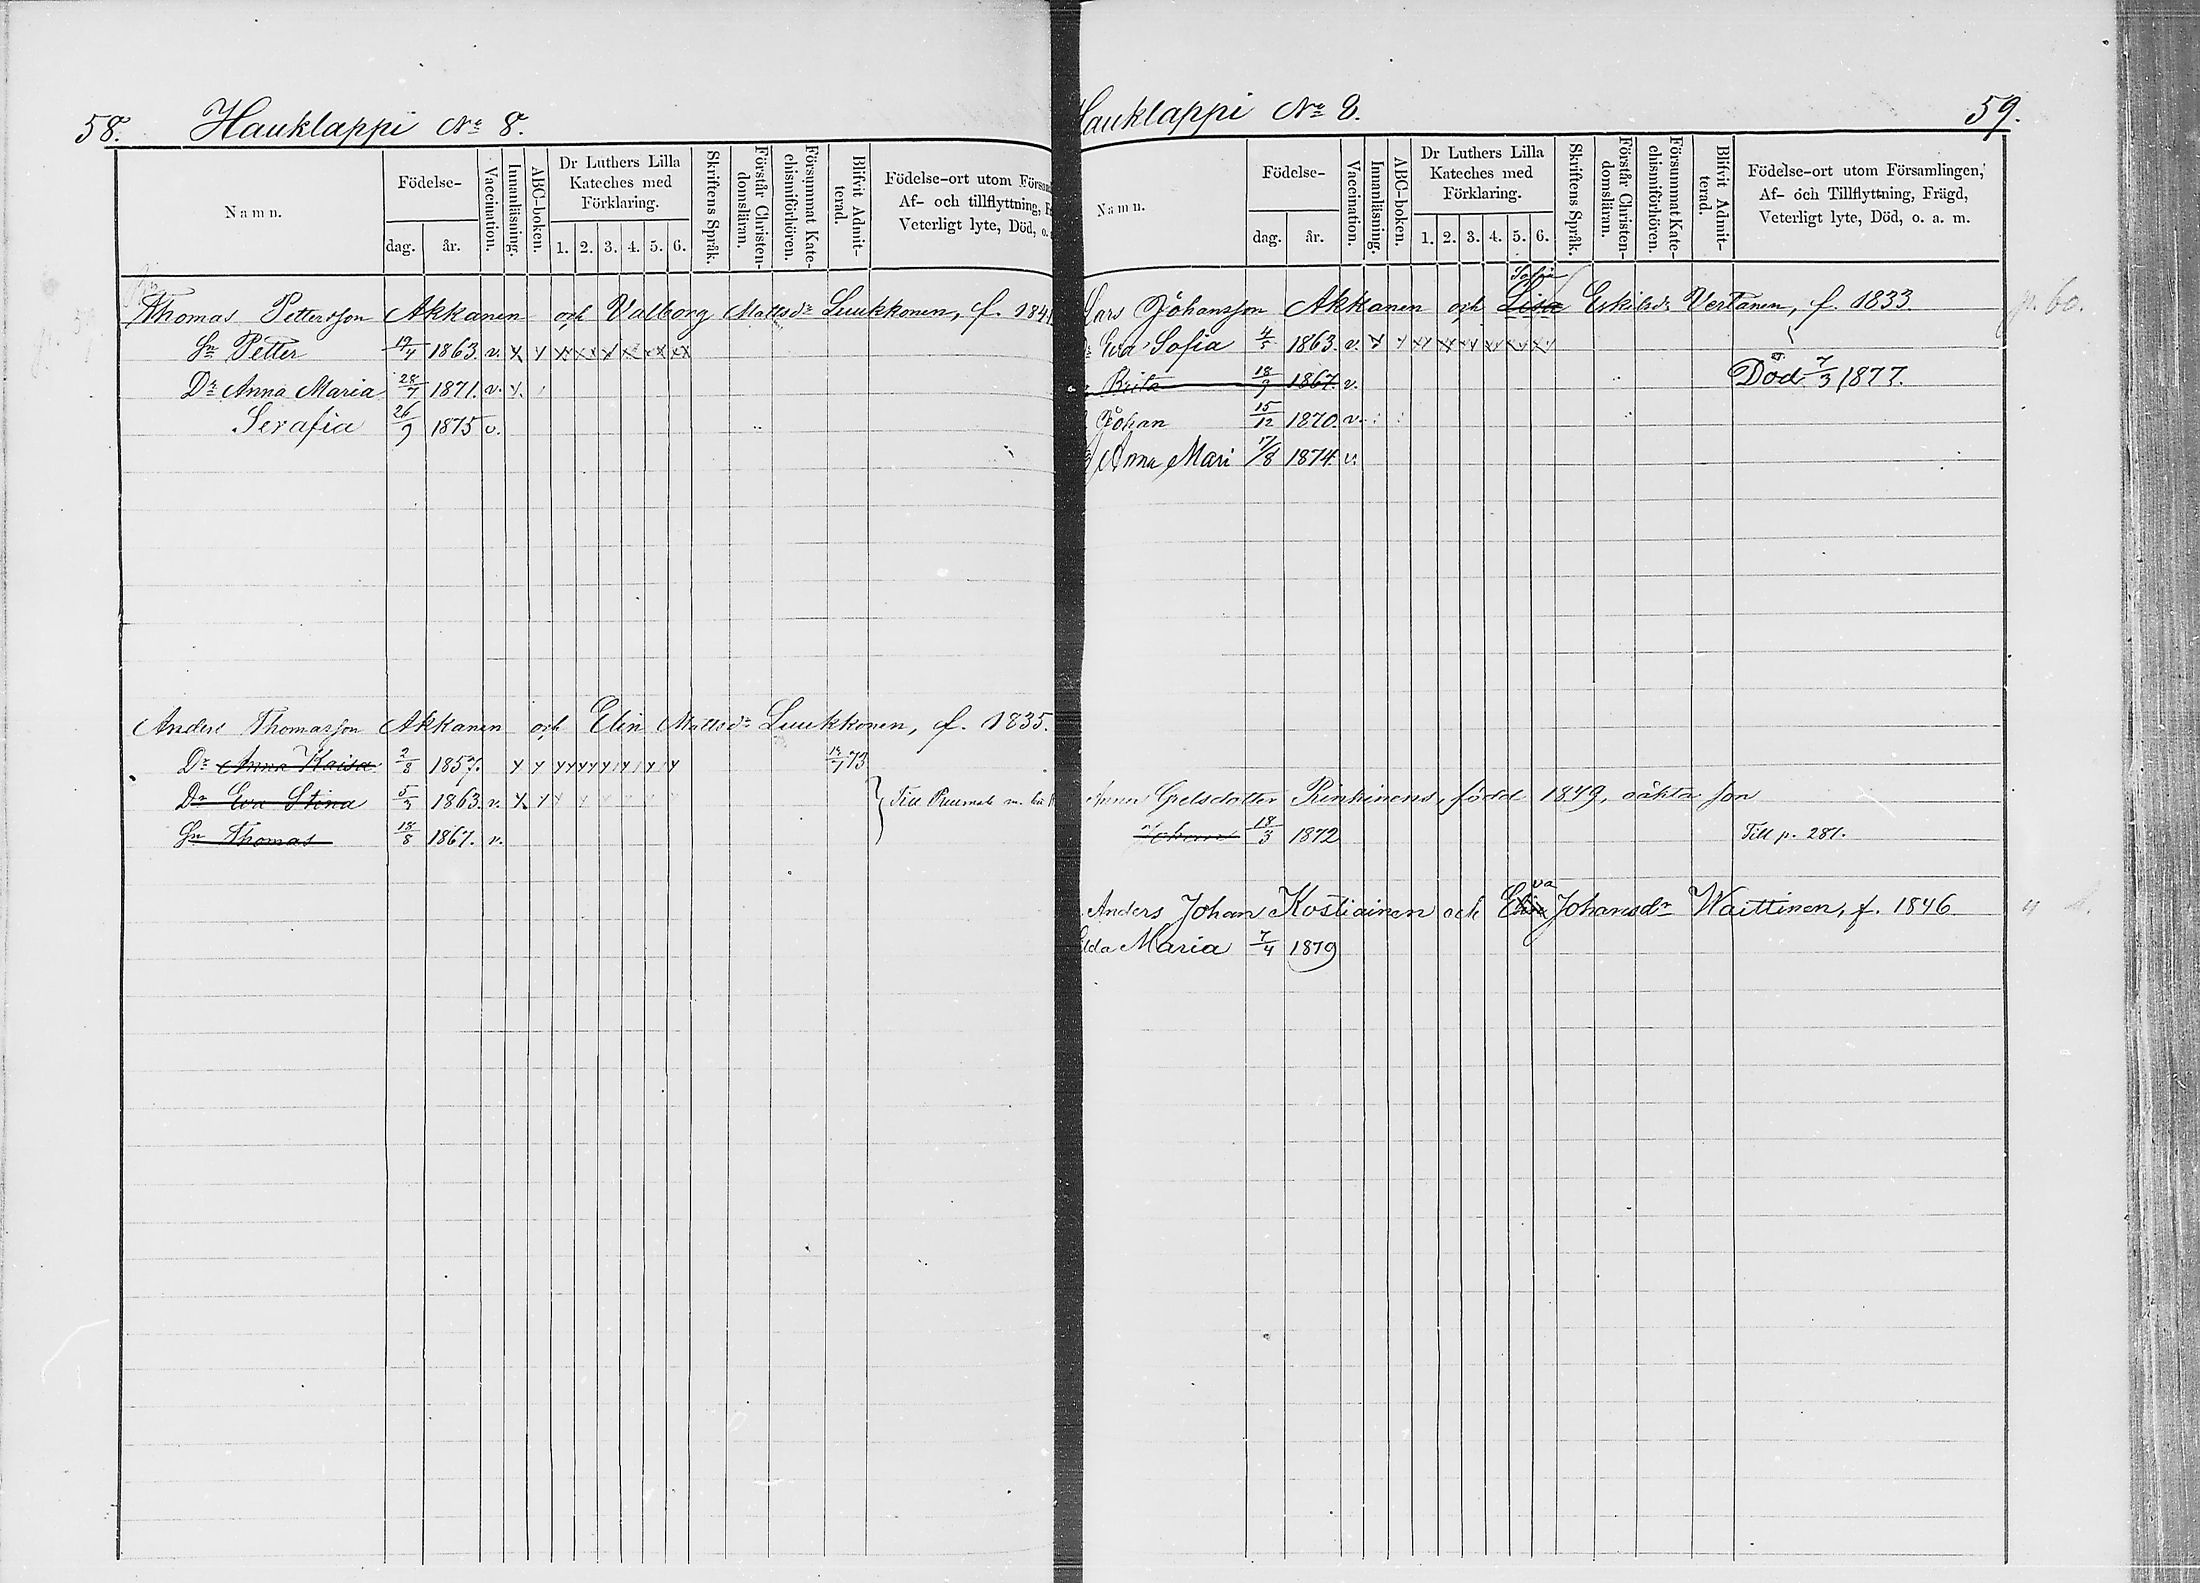 58. Hauklappi No 8.
Namn.
Födelse-
dag. år.
Vaccination.
Innanläsning.
ABC-boken.
Dr Luthers Lilla Kateches med Förklaring.
1. 2. 3. 4. 5. 6.
Skriftens Språk.
Förstår Christen-domsläran.
Försummat Kate-chismiförhören.
Blifvit Admit-terad.
Födelse-ort utom
Af- och tillflyttning,
Veterligt lyte, Död, o.
Thomas Pettersson Akkanen och Valborg Mattsdr Luukkonen, f. 1841
Sn Petter 19/4 1863. v. x y xx xxx x xx xx xx
Dr Anna Maria 28/7 1871. v. y.
Serafia 26/9 1875 v.
Anders Thomasson Akkanen och Elin Mattsdr Luukkonen, f. 1835.
Dr Anna Kaisa 2/8 1857. y y yy yy yy y y y 73
Dr Eva Stina 5/3 1863. v. y. y y y y y y y
Till Puumala m.
Sn Thomas 18/8 1867. v.
Hauklappi No 8. 59.
Namn.
Födelse-
dag. år.
Vaccination.
Innanläsning.
ABC-boken.
Dr Luthers Lilla Kateches med Förklaring.
1. 2. 3. 4. 5. 6.
Skriftens Språk.
Förstår Christen-domsläran.
Försummat Kate-chismiförhören.
Blifvit Admit-terad.
Födelse-ort utom Församlingen,
Af- och Tillflyttning, Frägd,
Veterligt lyte, Död, o. a. m.
Sofia
Lars Johansson Akkanen och Lisa Eskilsdr Vertanen, f. 1833. p. 60.
Eva Sofia 4/5 1863. v. y y xy xy xy xy xy xy
Brita 18/9 1867. v. Död 7/3 1877.
Johan 15/12 1870. v.
Anna Mari 17/8 1874. v.
Anna Grelsdotter Rinkinens, född 1849, oäkta son
Johan 18/3 1872 Till p. 281.
va
Anders Johan Kostiainen och Elin Johansdr Waittinen, f. 1846
Maria 7/4 1879